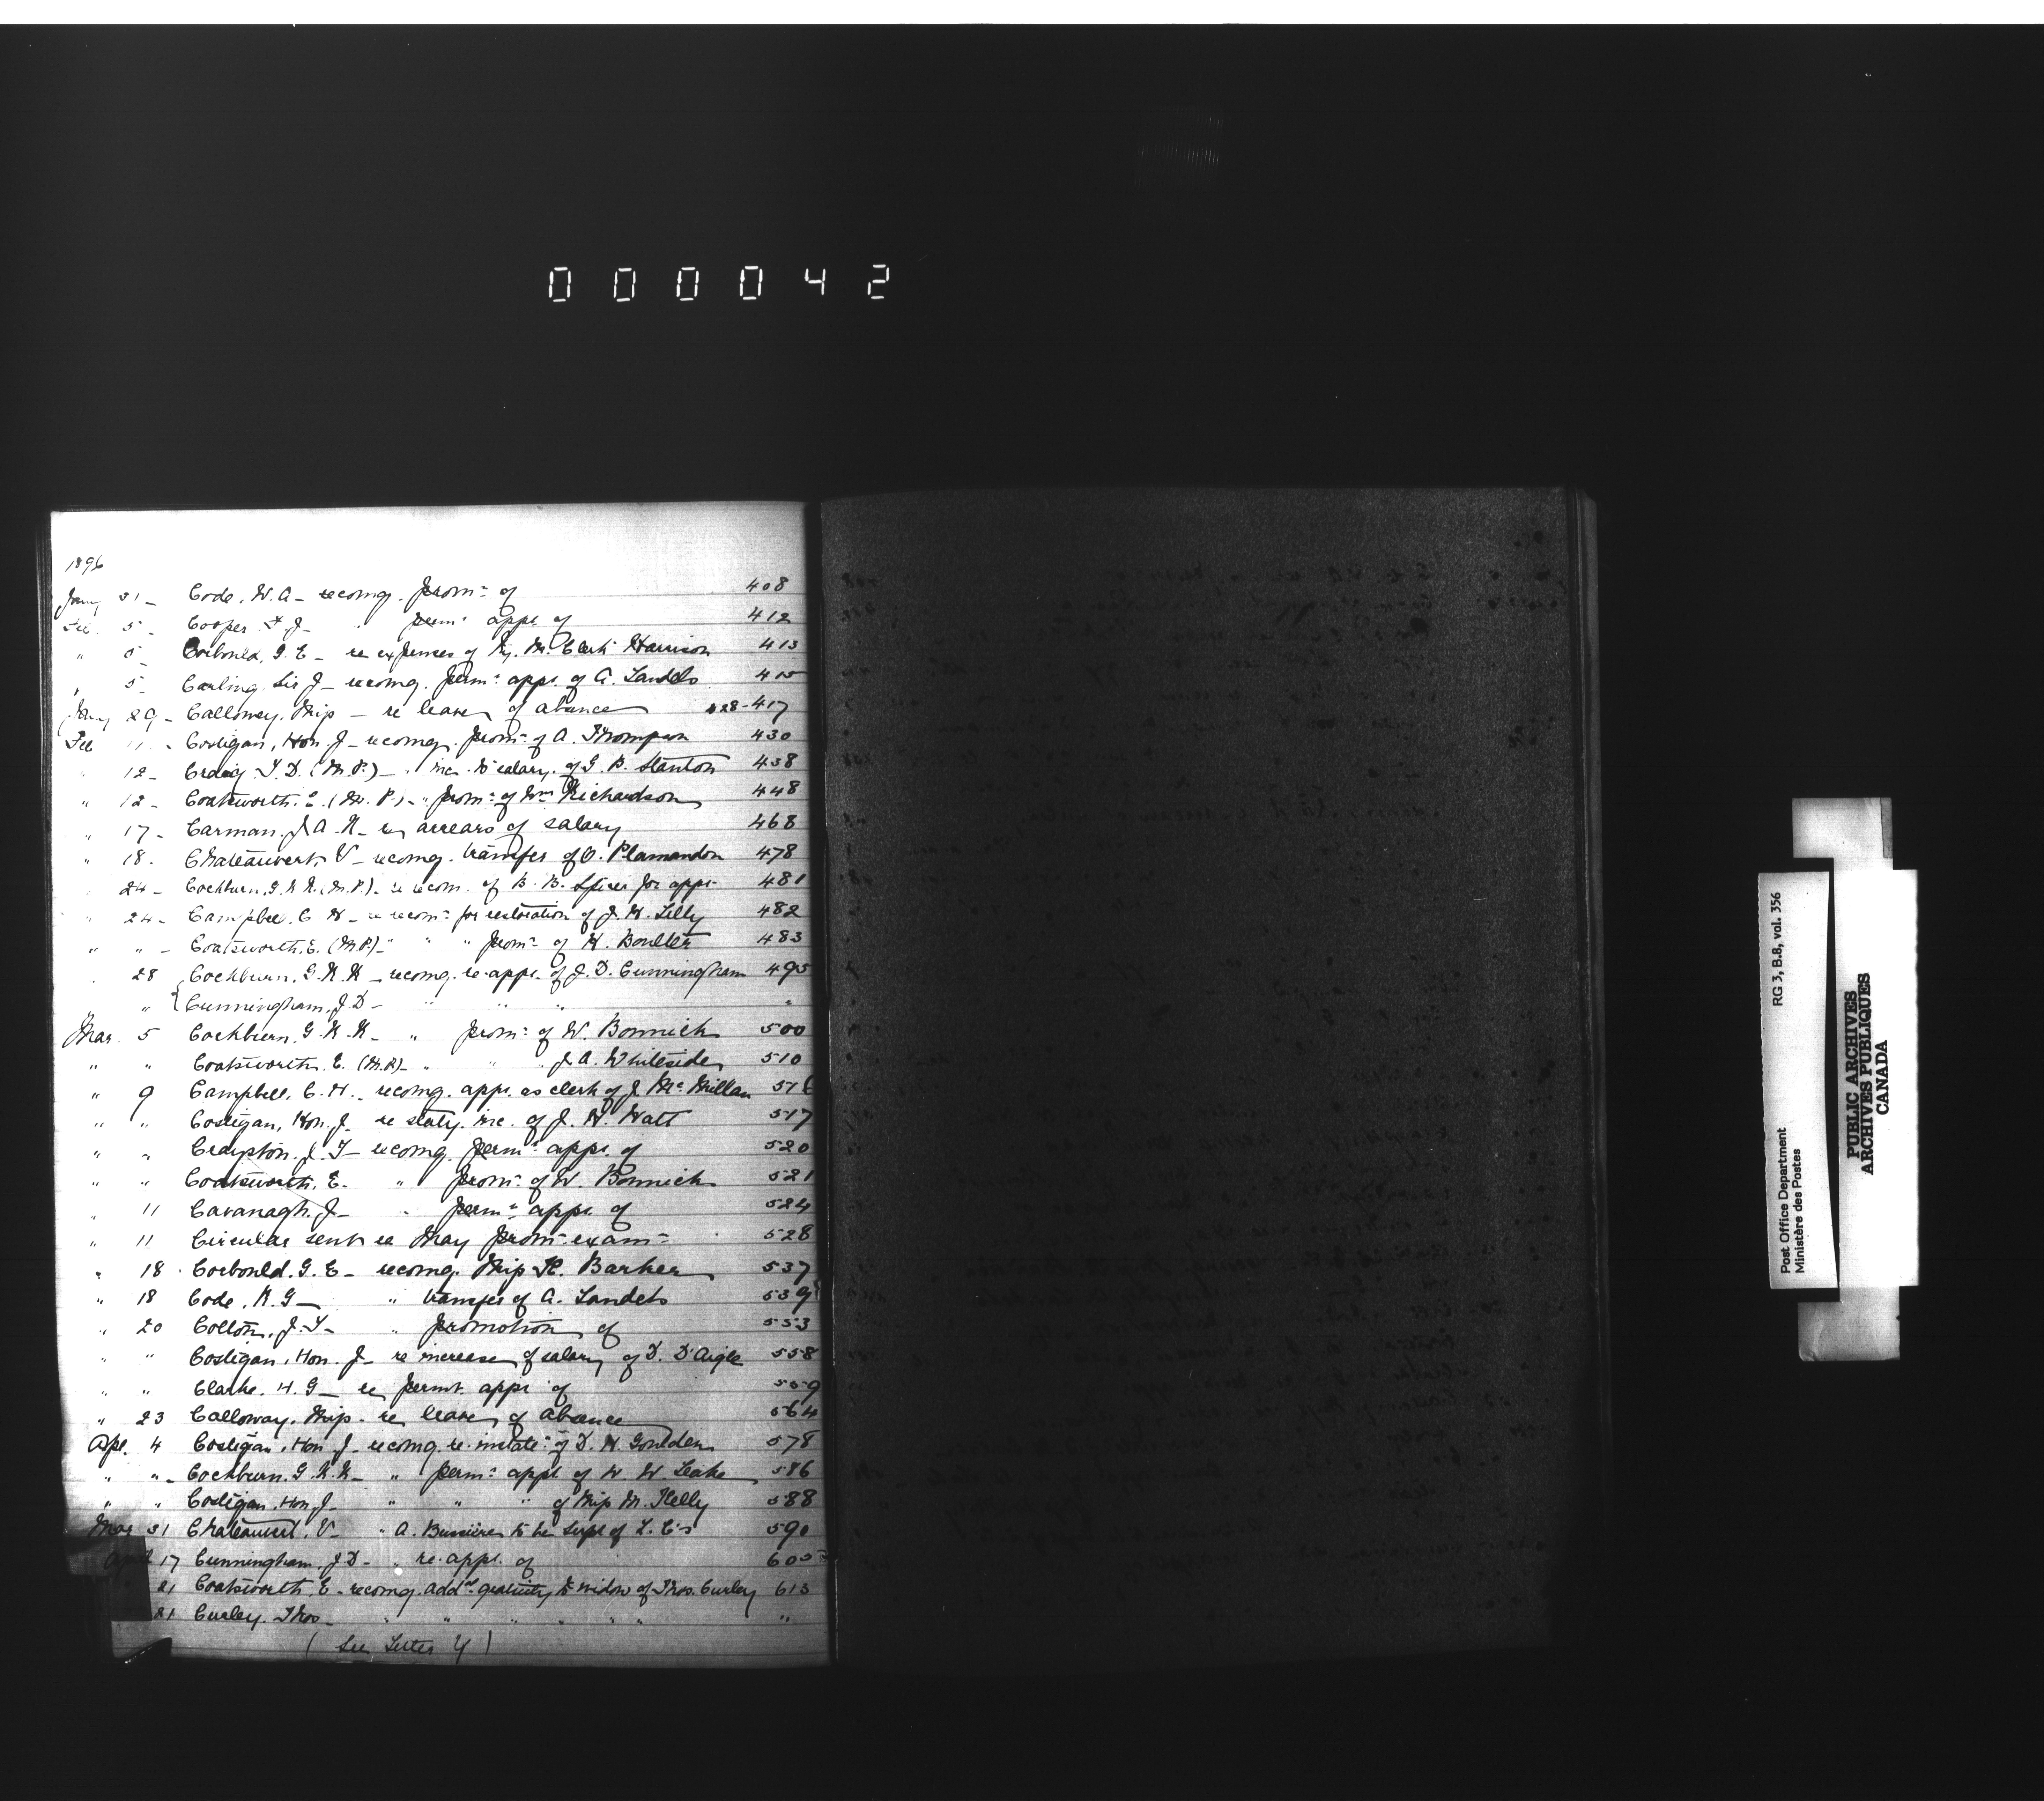 000042
1896
Jany 31 - Code, W. A - recomg. promn of 408
Feb. 5 - Cooper J - " permt appt. of 412
" 5 - Corbould, G. E - re expenses of Ry. M. Clerk Harrison 413
" 5 - Carling Sir J - recomg. permt appt. of A. Landels 415
Jany 29 - Calloway, Miss - re leave of absence 428-417
Feb 11 - Costigan, Hon. J - recomg. promn of A. Thompson 430
" 12 - Craig T. D. (M.P.) - " inc. to salary of G. B. Stanton 438
" 12 - Coatsworth, E. (M.P.) - " promn of Wm Richardson 448
" 17 - Carman, J. A. K - re arrears of salary 468
" 18. Chateauvert, V - recomg. transfer of O. Plamondon 478
" 24 - Cockburn, G. R. R. (M.P.) - re recom. of B. B. Spicer for appt. 481
" 24 - Campbell, C. H - re recomn for restoration of J. H. Lilly 482
" " - Coatsworth, E. (M.P.) - " " " promn of H. Boulter 483
" 28 { Cockburn, G. R. R - recomg. re-appt. of J. D. Cunningham 495
" { Cunningham, J. D - " " " "
Mar. 5 Cockburn, G. R. R - " promn of W. Bonnick 500
" " Coatsworth, E. (M.P.) - " " J. A. Whiteside 510
" 9 Campbell, C. H. - recomg. appt. as clerk of J. McMillan 516
" " Costigan, Hon. J - re staty. inc. of J. H. Watt 517
" " Crapston, J. T - recomg. permt appt. of 520
" " Coatsworth, E. " promn of W. Bonnick 521
" 11 Cavanagh, J - " permt appt. of 524
" 11 Circular sent re May promn examn 528
" 18 Corbould, G. E - recomg. Miss H. Barker 537
" 18 Code, R. G - " transfer of A. Landels 539
" 20 Colton, J. T - " promotion of 553
" " Costigan, Hon. J - re increase of salary of D. D'Aigle 558
" " Clarke, H. G - re permt. appt. of 559
" 23 Calloway, Miss - re leave of absence 564
Apl. 4 Costigan, Hon J - recomg. re-instatet of D. H. Goulden 578
" " - Cockburn, G. R. R - " permt appt. of W. W. Leake 586
" " Costigan, Hon J - " " " of Miss M. Kelly 588
Mar 31 Chateauvert, V - " A. Bussière to be Supt of L. C's 590
April 17 Cunningham, J. D - " re-appt. of 605
21 Coatsworth, E - recomg. addnl gratuity to widow of Thos. Curley 613
21 Curley, Thos - " " " " " " "
(See Letter Y)
RG 3, B.8, vol. 356
Post Office Department
Ministère des Postes
PUBLIC ARCHIVES
ARCHIVES PUBLIQUES
CANADA